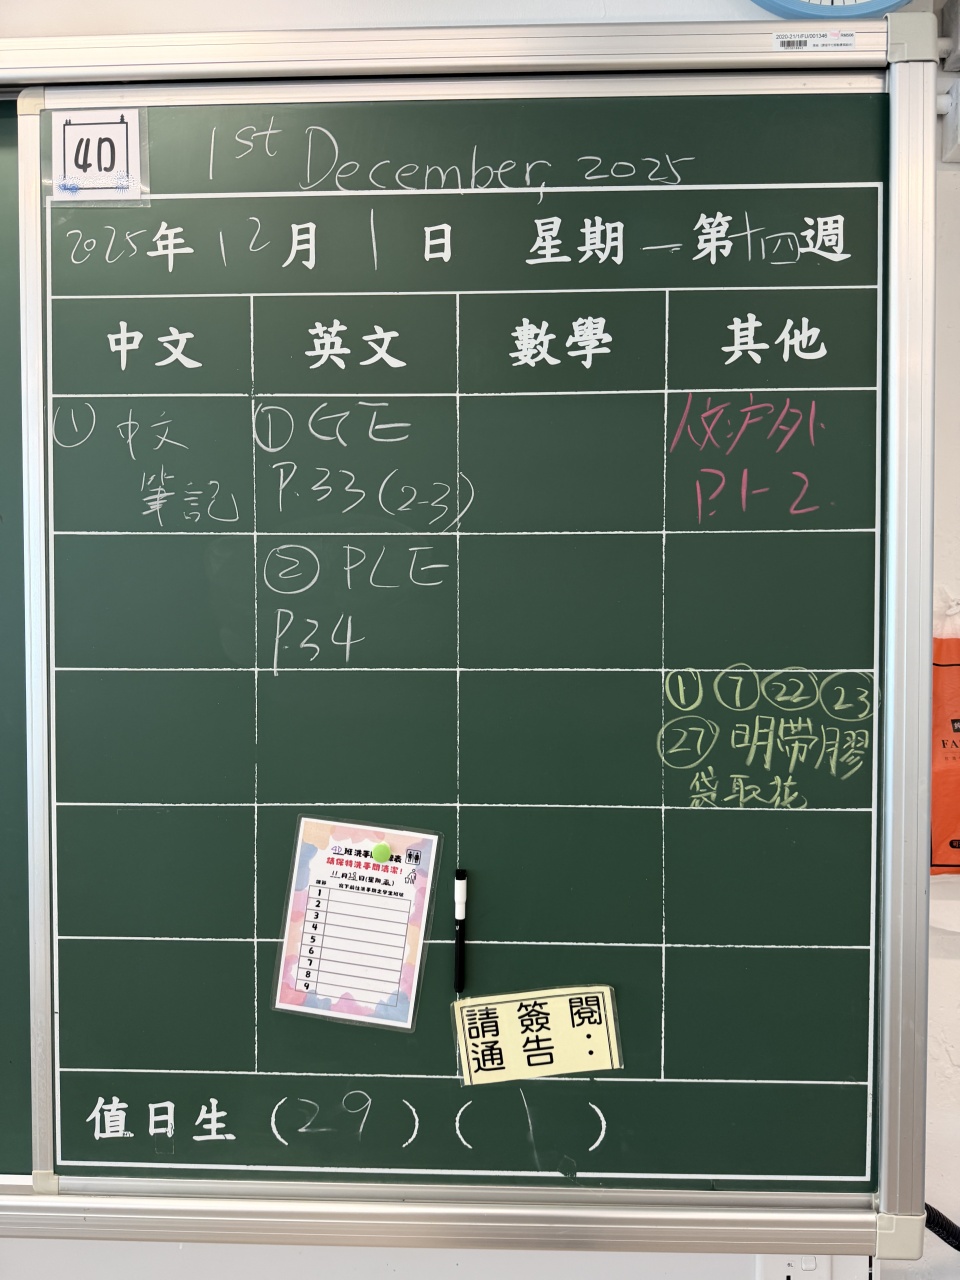 2020-21/1FU/001346
4D
1st December, 2025
2025年12月1日 星期一 第十四週
中文 英文 數學 其他
① 中文
筆記
① GE
P.33 (2-3)
② PLE
P.34
人文戶外
P.1-2
① ⑦ ㉒ ㉓
㉗ 明帶膠
袋取花
4D班洗手間
請保持洗手間清潔!
11月28日(星期五)
1
2
3
4
5
6
7
8
9
請簽閱
通告:
值日生 (29) (1)
FA